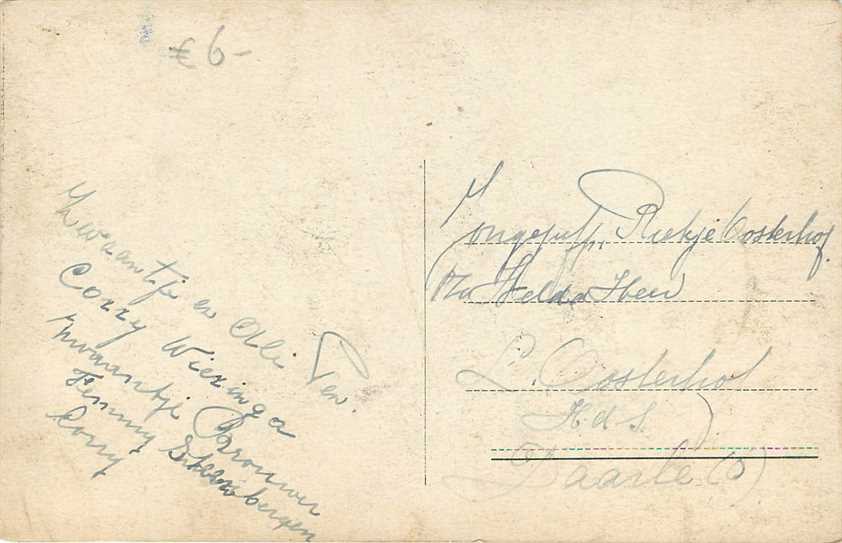 € 6-
Zwaantje en Alie Pen.
Corry Wieringa
Zwaantje Brouwer
Femmy Steenbergen
Corry
Jongejuff. Riekje Oosterhof
Heer
L. Oosterhof
H.d.S.
Daarle (O)